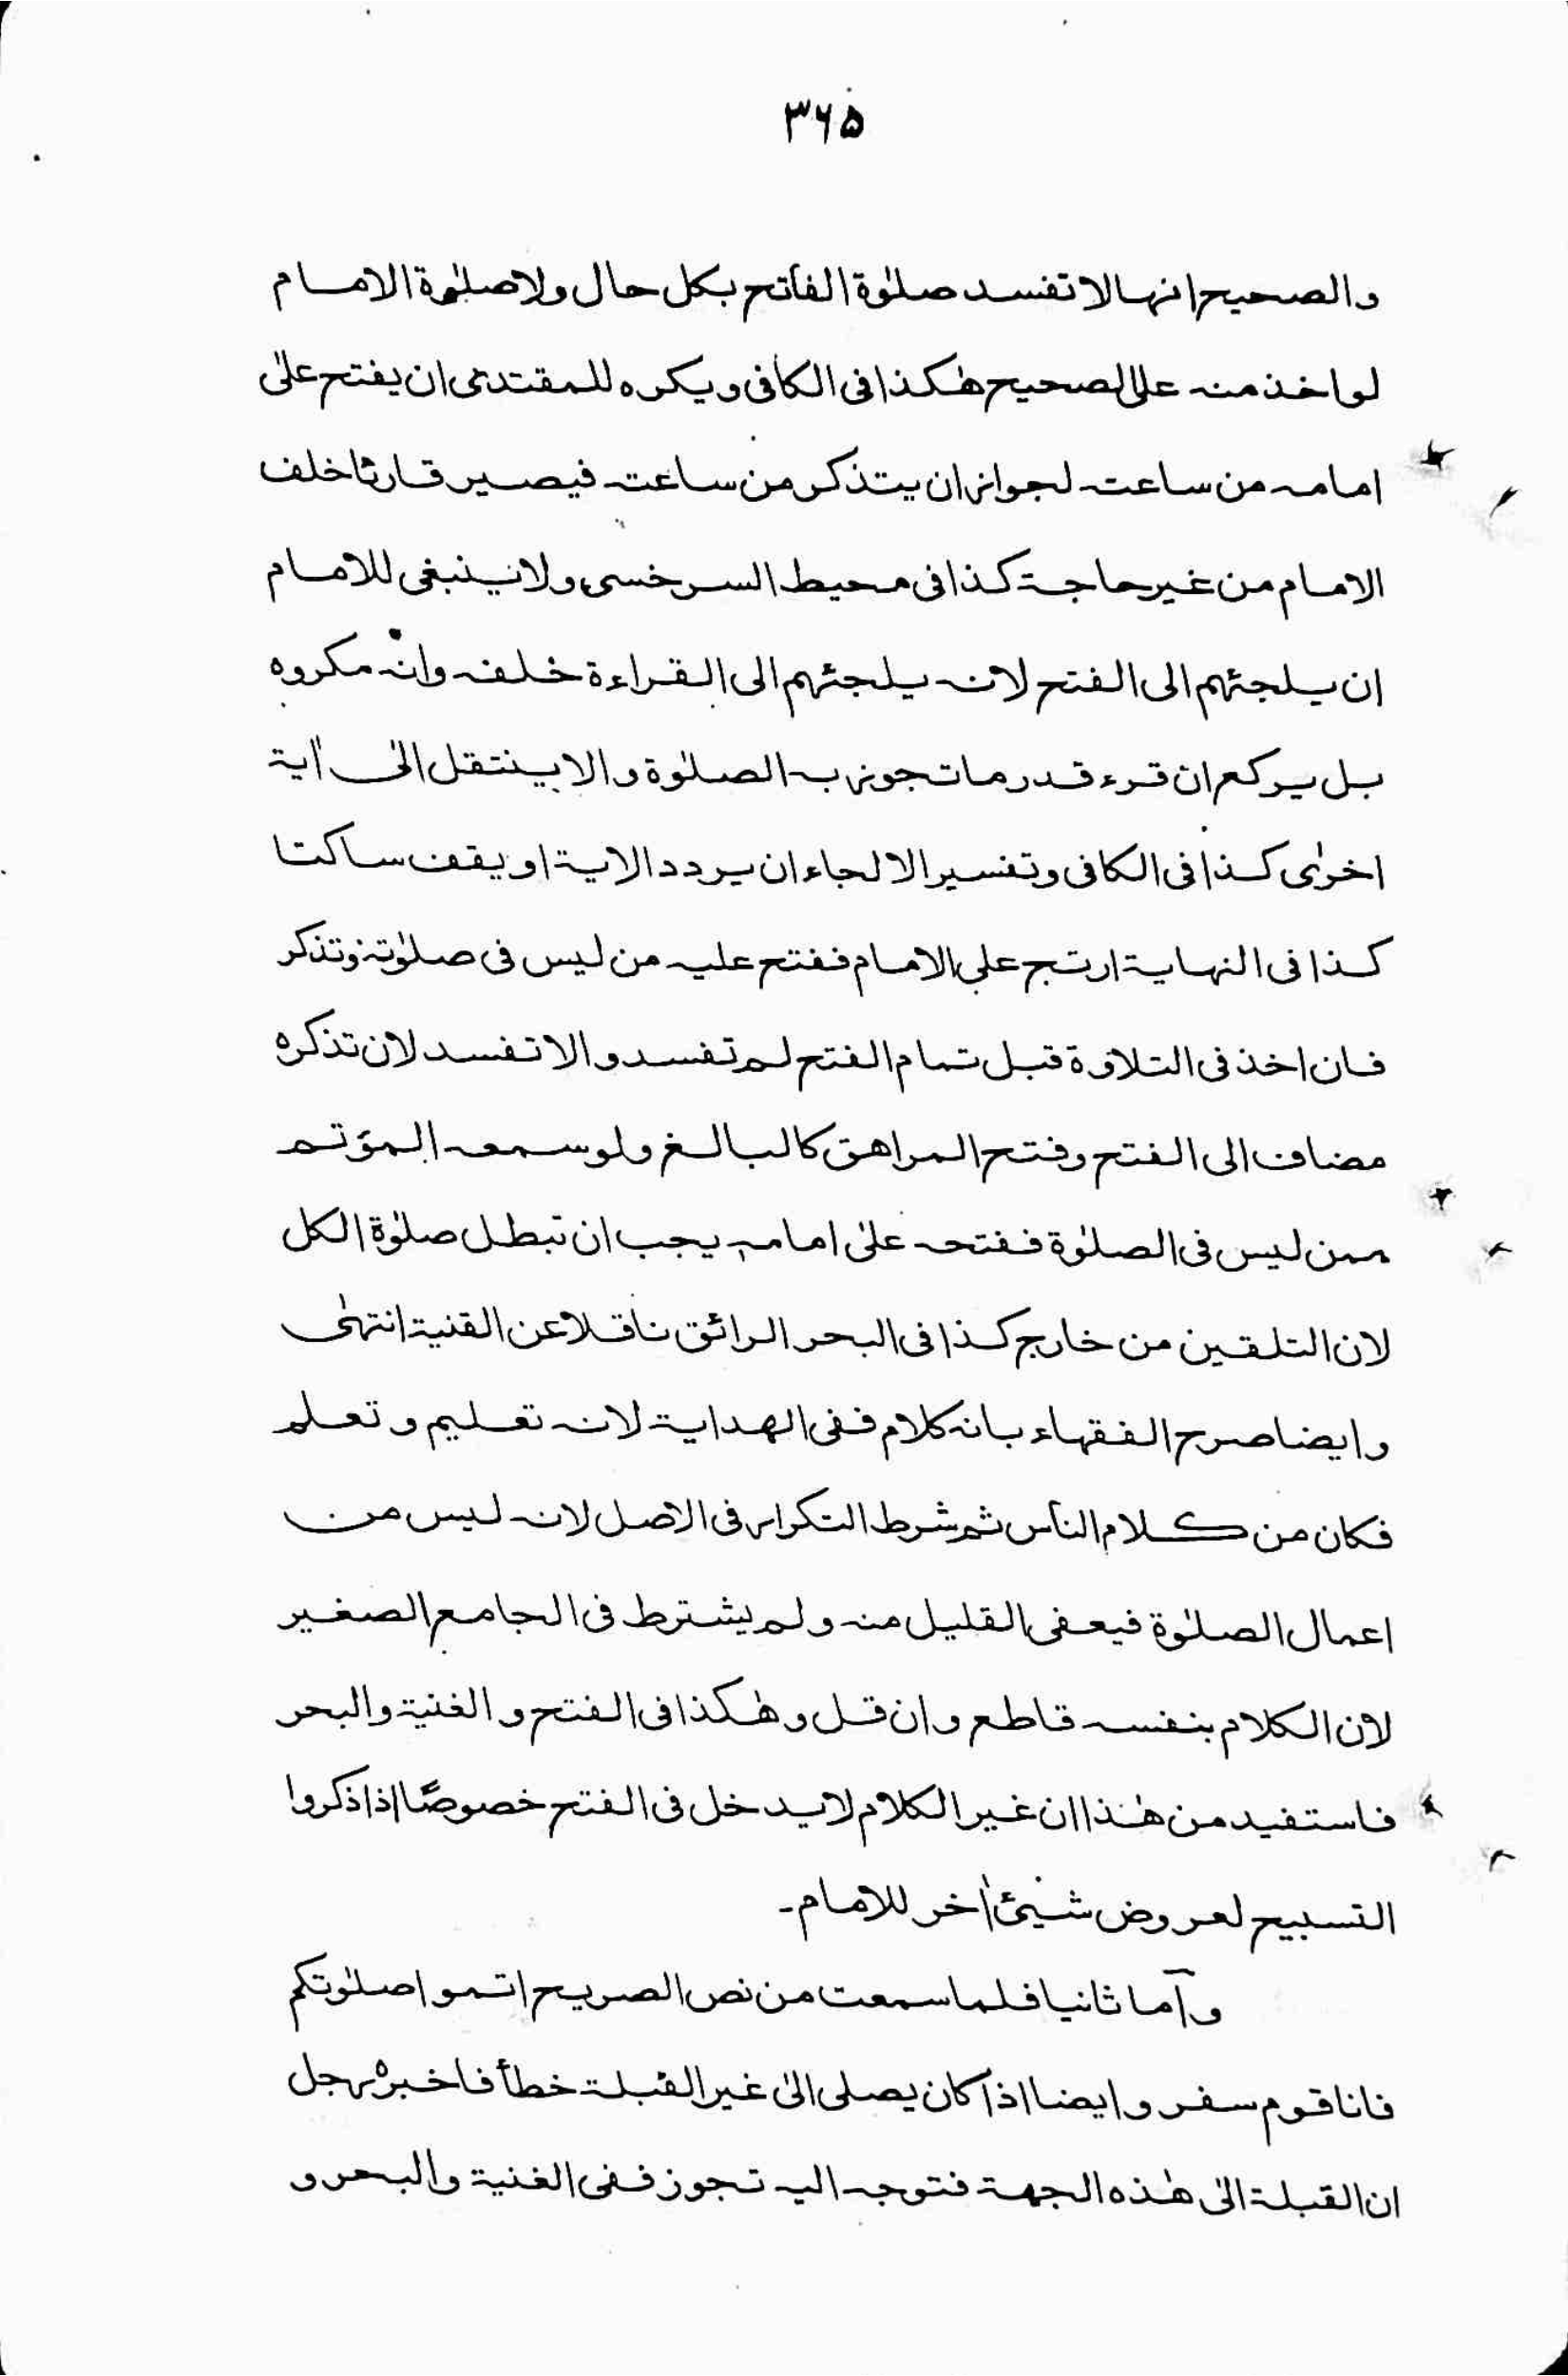 ۳۶۵
والصحیح انہا لا تفسد صلوٰۃ الفاتح بکل حال ولا صلوٰۃ الامام
لو اخذ منہ علی الصحیح ھٰکذا فی الکافی ویکرہ للمقتدی ان یفتح علیٰ
امامہ من ساعتہ لجواز ان یتذکر من ساعتہ فیصیر قارئا خلف
الامام من غیر حاجۃ کذا فی محیط السرخسی ولا ینبغی للامام
ان یلجئہم الی الفتح لانہ یلجئہم الی القراءۃ خلفہ وانہ مکروہ
بل یرکع ان قرء قدر ما تجوز بہ الصلوٰۃ والا ینتقل الیٰ اٰیۃ
اخریٰ کذا فی الکافی وتفسیر الالجاء ان یردد الایۃ او یقف ساکتا
کذا فی النہایۃ ارتج علی الامام ففتح علیہ من لیس فی صلوٰتہ وتذکر
فان اخذ فی التلاوۃ قبل تمام الفتح لم تفسد والا تفسد لان تذکرہ
مضاف الی الفتح وفتح المراھق کالبالغ ولو سمعہ المؤتم
ممن لیس فی الصلوٰۃ ففتحہ علیٰ امامہ یجب ان تبطل صلوٰۃ الکل
لان التلقین من خارج کذا فی البحر الرائق ناقلا عن القنیۃ انتہٰی
وایضا صرح الفقہاء بانہ کلام ففی الھدایۃ لانہ تعلیم و تعلم
فکان من کلام الناس ثم شرط التکرار فی الاصل لانہ لیس من
اعمال الصلوٰۃ فیعفی القلیل منہ ولم یشترط فی الجامع الصغیر
لان الکلام بنفسہ قاطع وان قل وھٰکذا فی الفتح والغنیۃ والبحر
فاستفید من ھٰذا ان غیر الکلام لا یدخل فی الفتح خصوصًا اذا ذکروا
التسبیح لعروض شیئ اٰخر للامام۔
وآما ثانیا فلما سمعت من نص الصریح اتموا صلوٰتکم
فانا قوم سفر وایضا اذا کان یصلی الیٰ غیر القبلۃ خطأ فاخبرہ رجل
ان القبلۃ الیٰ ھٰذہ الجھۃ فتوجہ الیہ تجوز ففی الغنیۃ والبحر و